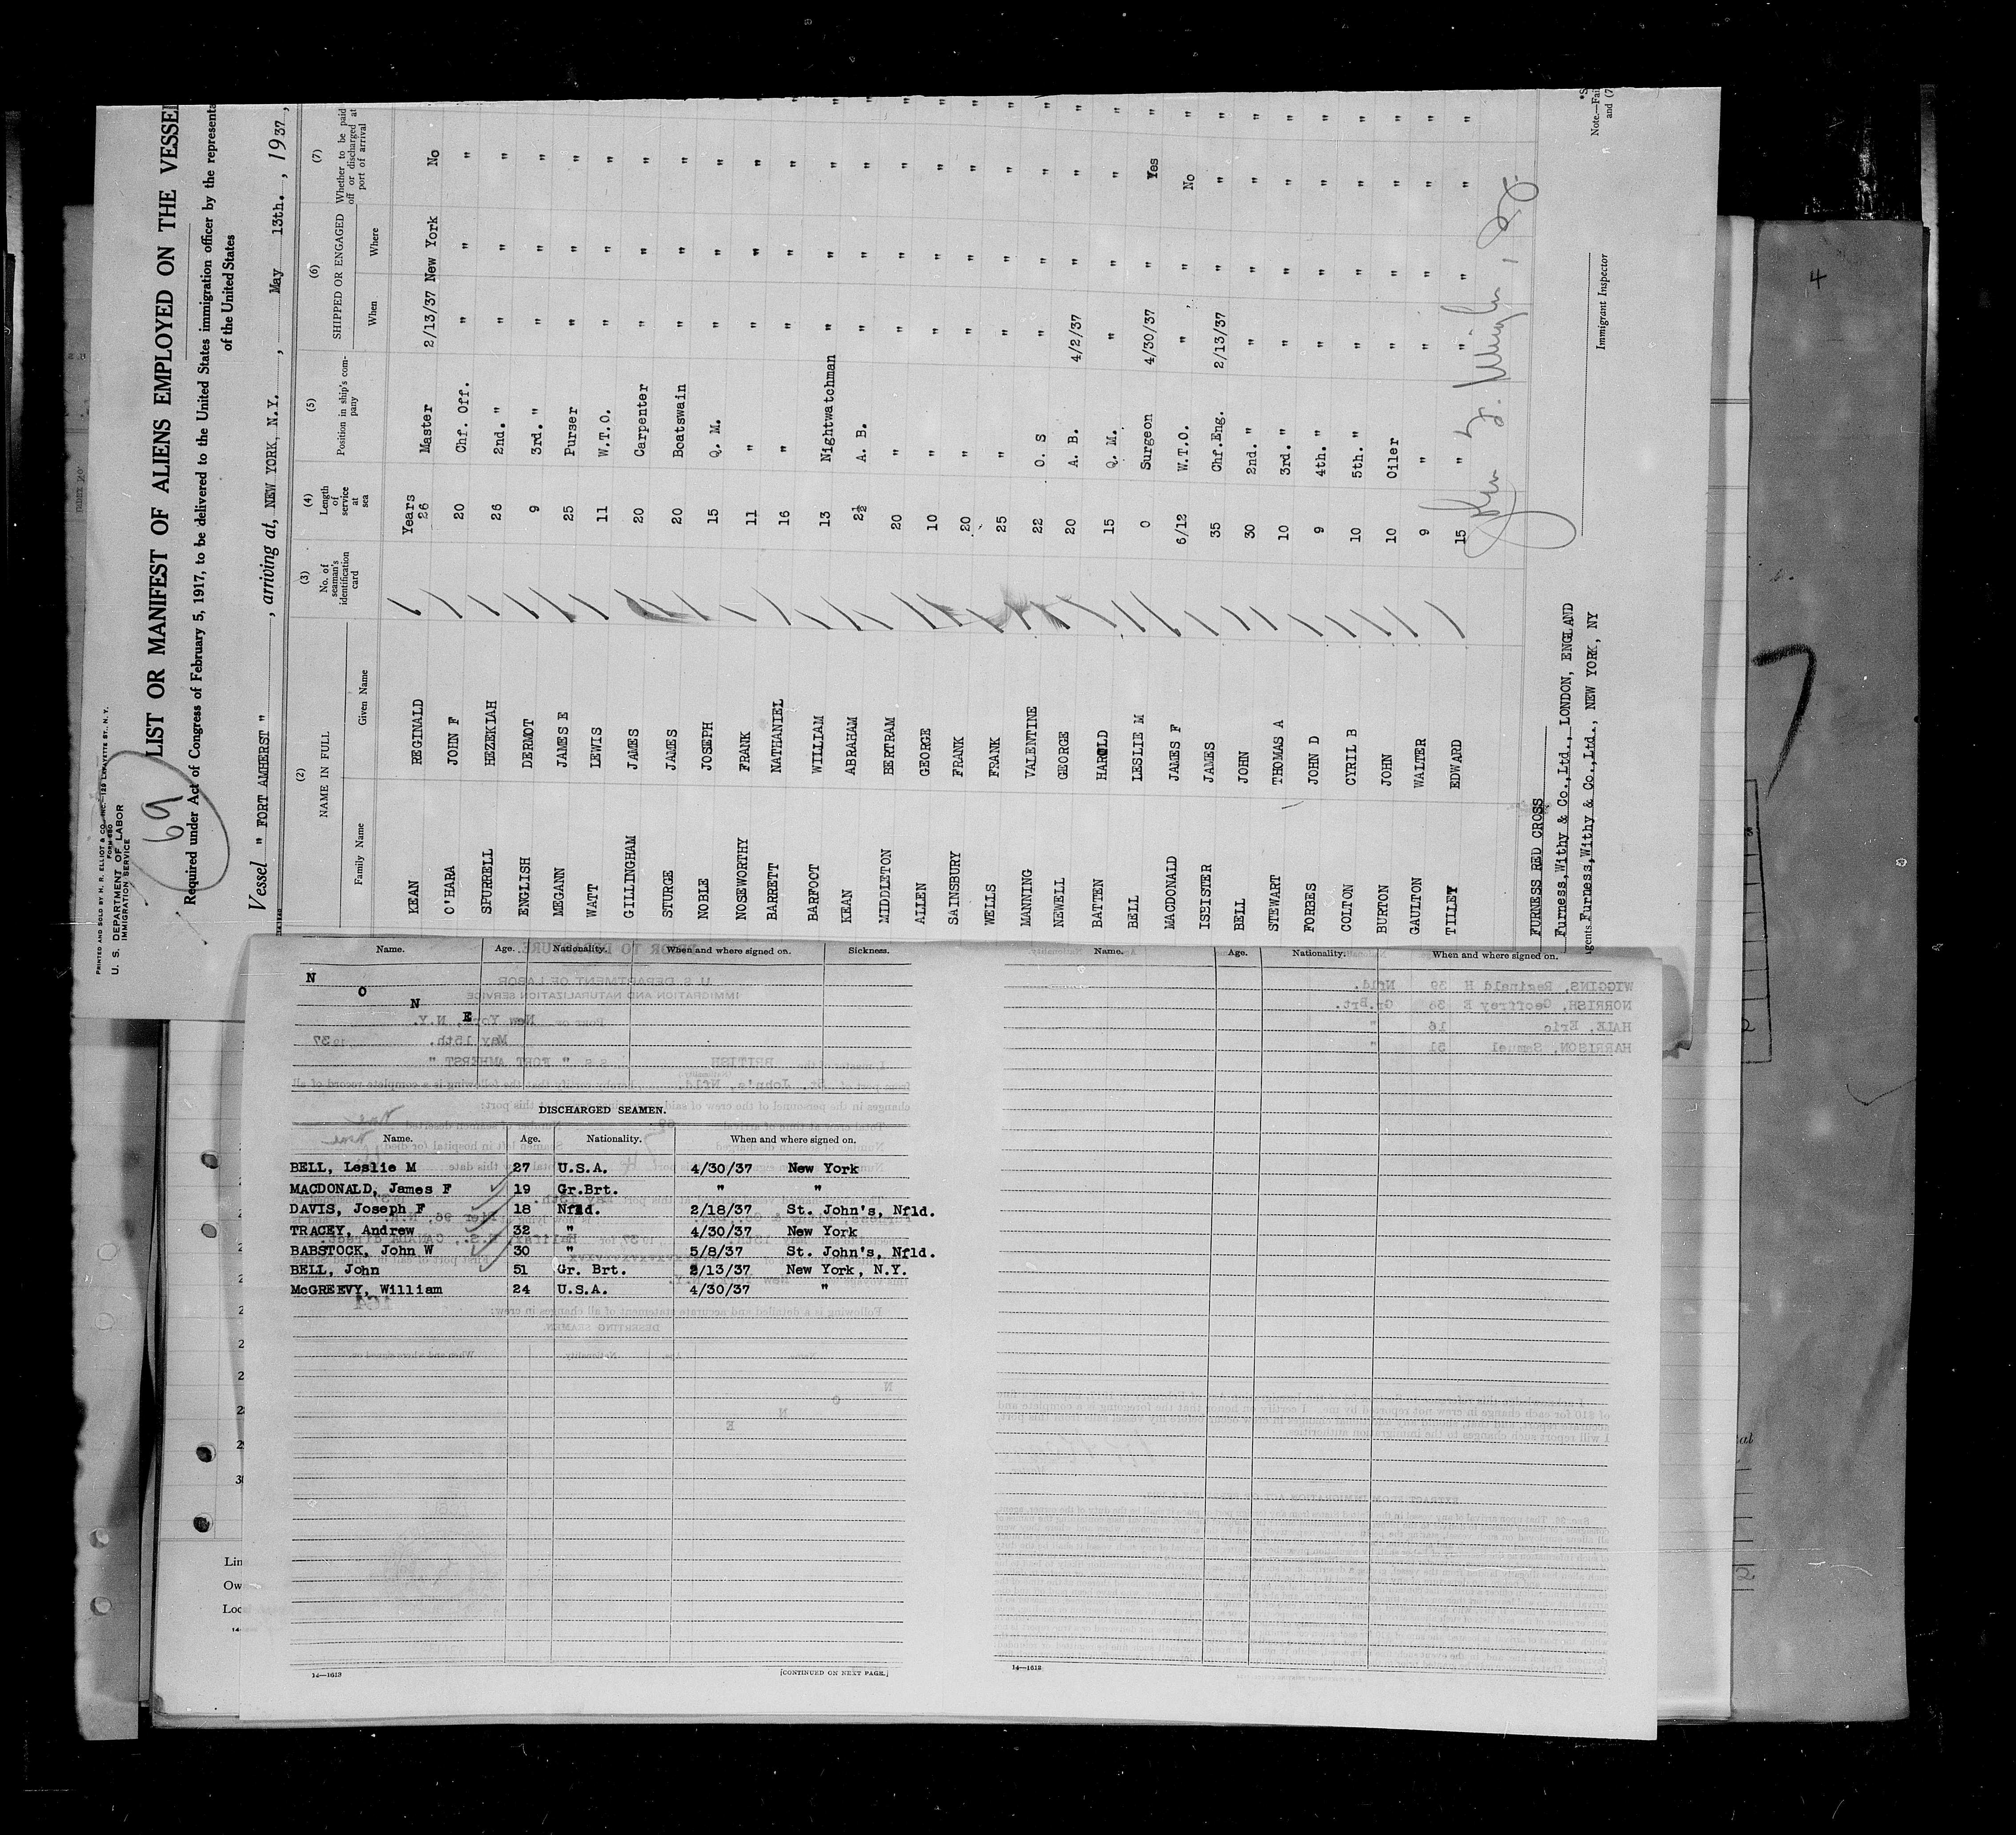 PRINTED AND SOLD BY H. R. ELLIOT & CO., INC.—129 LAFAYETTE ST., N. Y.
FORM 680
U. S. DEPARTMENT OF LABOR
IMMIGRATION SERVICE
69
LIST OR MANIFEST OF ALIENS EMPLOYED ON THE VESSEL
Required under Act of Congress of February 5, 1917, to be delivered to the United States immigration officer by the representa
of the United States
Vessel " FORT AMHERST " , arriving at, NEW YORK, N.Y. , May 13th. , 1937 ,
(2) (3) (4) (5) (6) (7)
NAME IN FULL No. of seaman's identification card Length of service at sea Position in ship's company SHIPPED OR ENGAGED Whether to be paid off or discharged at port of arrival
Family Name Given Name When Where
KEAN REGINALD Years 26 Master 2/13/37 New York No
O'HARA JOHN F 20 Chf. Off. " " " "
SPURRELL HEZEKIAH 26 2nd. " " " " "
ENGLISH DERMOT 9 3rd. " " " " "
MEGANN JAMES E 25 Purser " " " "
WATT LEWIS 11 W.T.O. " " " "
GILLINGHAM JAMES 20 Carpenter " " " "
STURGE JAMES 20 Boatswain " " " "
NOBLE JOSEPH 15 Q. M. " " " "
NOSEWORTHY FRANK 11 " " " " "
BARRETT NATHANIEL 16 " " " " "
BARFOOT WILLIAM 13 Nightwatchman " " " "
KEAN ABRAHAM 2½ A. B. " " " "
MIDDLETON BERTRAM 20 " " " " "
ALLEN GEORGE 10 " " " " "
SAINSBURY FRANK 20 " " " " "
WELLS FRANK 25 " " " " "
MANNING VALENTINE 22 O. S " " " "
NEWELL GEORGE 20 A. B. 4/2/37 " " "
BATTEN HAROLD 15 Q. M. " " " "
BELL LESLIE M 0 Surgeon 4/30/37 " Yes "
MACDONALD JAMES F 6/12 W.T.O. " " No "
ISBISTER JAMES 35 Chf.Eng. 2/13/37 " " "
BELL JOHN 30 2nd. " " " " "
STEWART THOMAS A 10 3rd. " " " " "
FORBES JOHN D 9 4th. " " " " "
COLTON CYRIL B 10 5th. " " " " "
BURTON JOHN 10 Oiler " " " "
GAULTON WALTER 9 " " " " "
TILLEY EDWARD 15 " " " " "
FURNESS RED CROSS
Furness,Withy & Co.,Ltd., LONDON, ENGLAND
gents.Furness,Withy & Co.,Ltd., NEW YORK, NY
Immigrant Inspector
Note.—Fai
and (7
Name. Age. Nationality. When and where signed on. Sickness.
N
O
N
E
DISCHARGED SEAMEN.
Name. Age. Nationality. When and where signed on.
BELL, Leslie M 27 U.S.A. 4/30/37 New York
MACDONALD, James F 19 Gr.Brt. " "
DAVIS, Joseph F 18 Nfld. 2/18/37 St. John's, Nfld.
TRACEY, Andrew 32 " 4/30/37 New York
BABSTOCK, John W 30 " 5/8/37 St. John's, Nfld.
BELL, John 51 Gr. Brt. 2/13/37 New York, N.Y.
McGREEVY, William 24 U.S.A. 4/30/37 "
14—1613 [CONTINUED ON NEXT PAGE.]
Name. Age. Nationality. When and where signed on.
14—1613
Lin
Ow
Loc
4
7